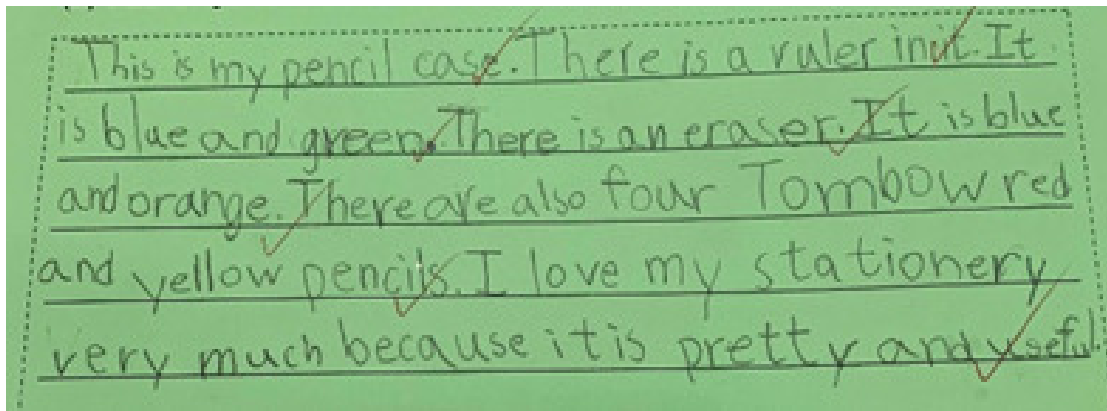 This is my pencil case. There is a ruler in it. It
is blue and green. There is an eraser. It is blue
and orange. There are also four Tombow red
and yellow pencils. I love my stationery
very much because it is pretty and useful.